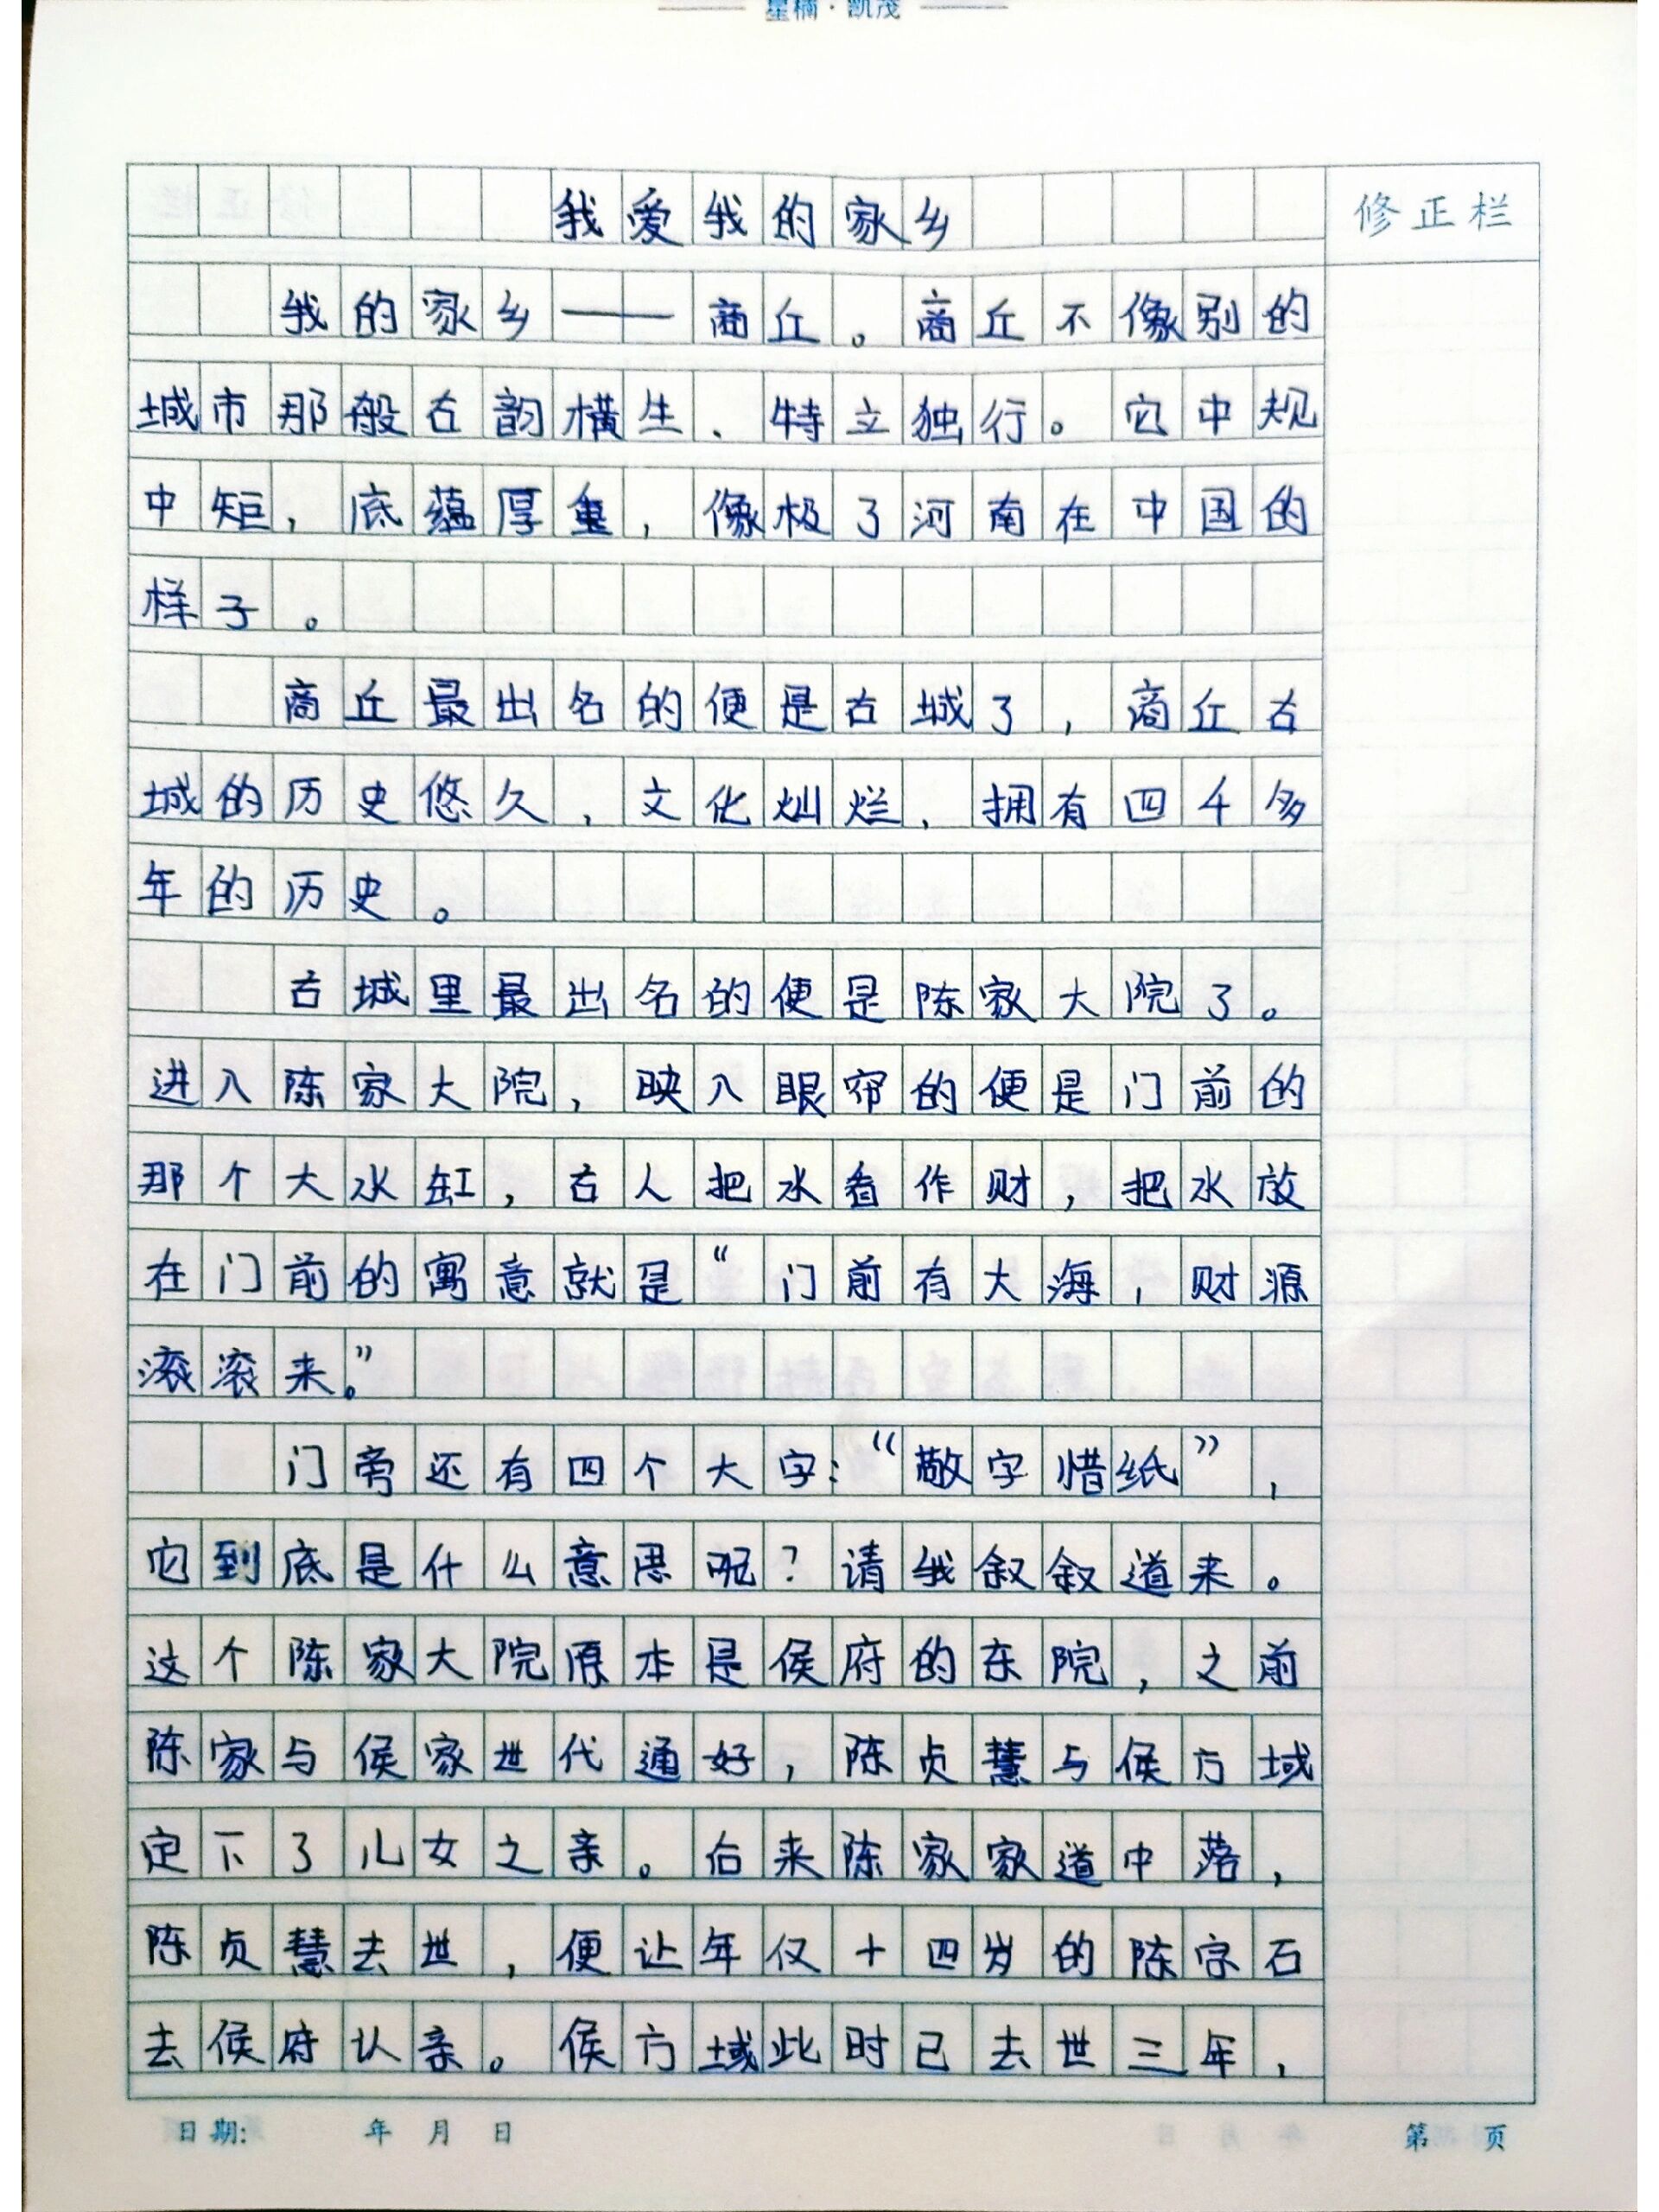 星橘·凯茂
我爱我的家乡
修正栏
我的家乡——商丘。商丘不像别的
城市那般古韵横生、特立独行。它中规
中矩，底蕴厚重，像极了河南在中国的
样子。
商丘最出名的便是古城了，商丘古
城的历史悠久，文化灿烂，拥有四千多
年的历史。
古城里最出名的便是陈家大院了。
进入陈家大院，映入眼帘的便是门前的
那个大水缸，古人把水看作财，把水放
在门前的寓意就是“门前有大海，财源
滚滚来。”
门旁还有四个大字：“敬字惜纸”，
它到底是什么意思呢？请我叙叙道来。
这个陈家大院原本是侯府的东院，之前
陈家与侯家世代通好，陈贞慧与侯方域
定下了儿女之亲。后来陈家家道中落，
陈贞慧去世，便让年仅十四岁的陈宗石
去侯府认亲。侯方域此时已去世三年，
日期: 年 月 日
第 页